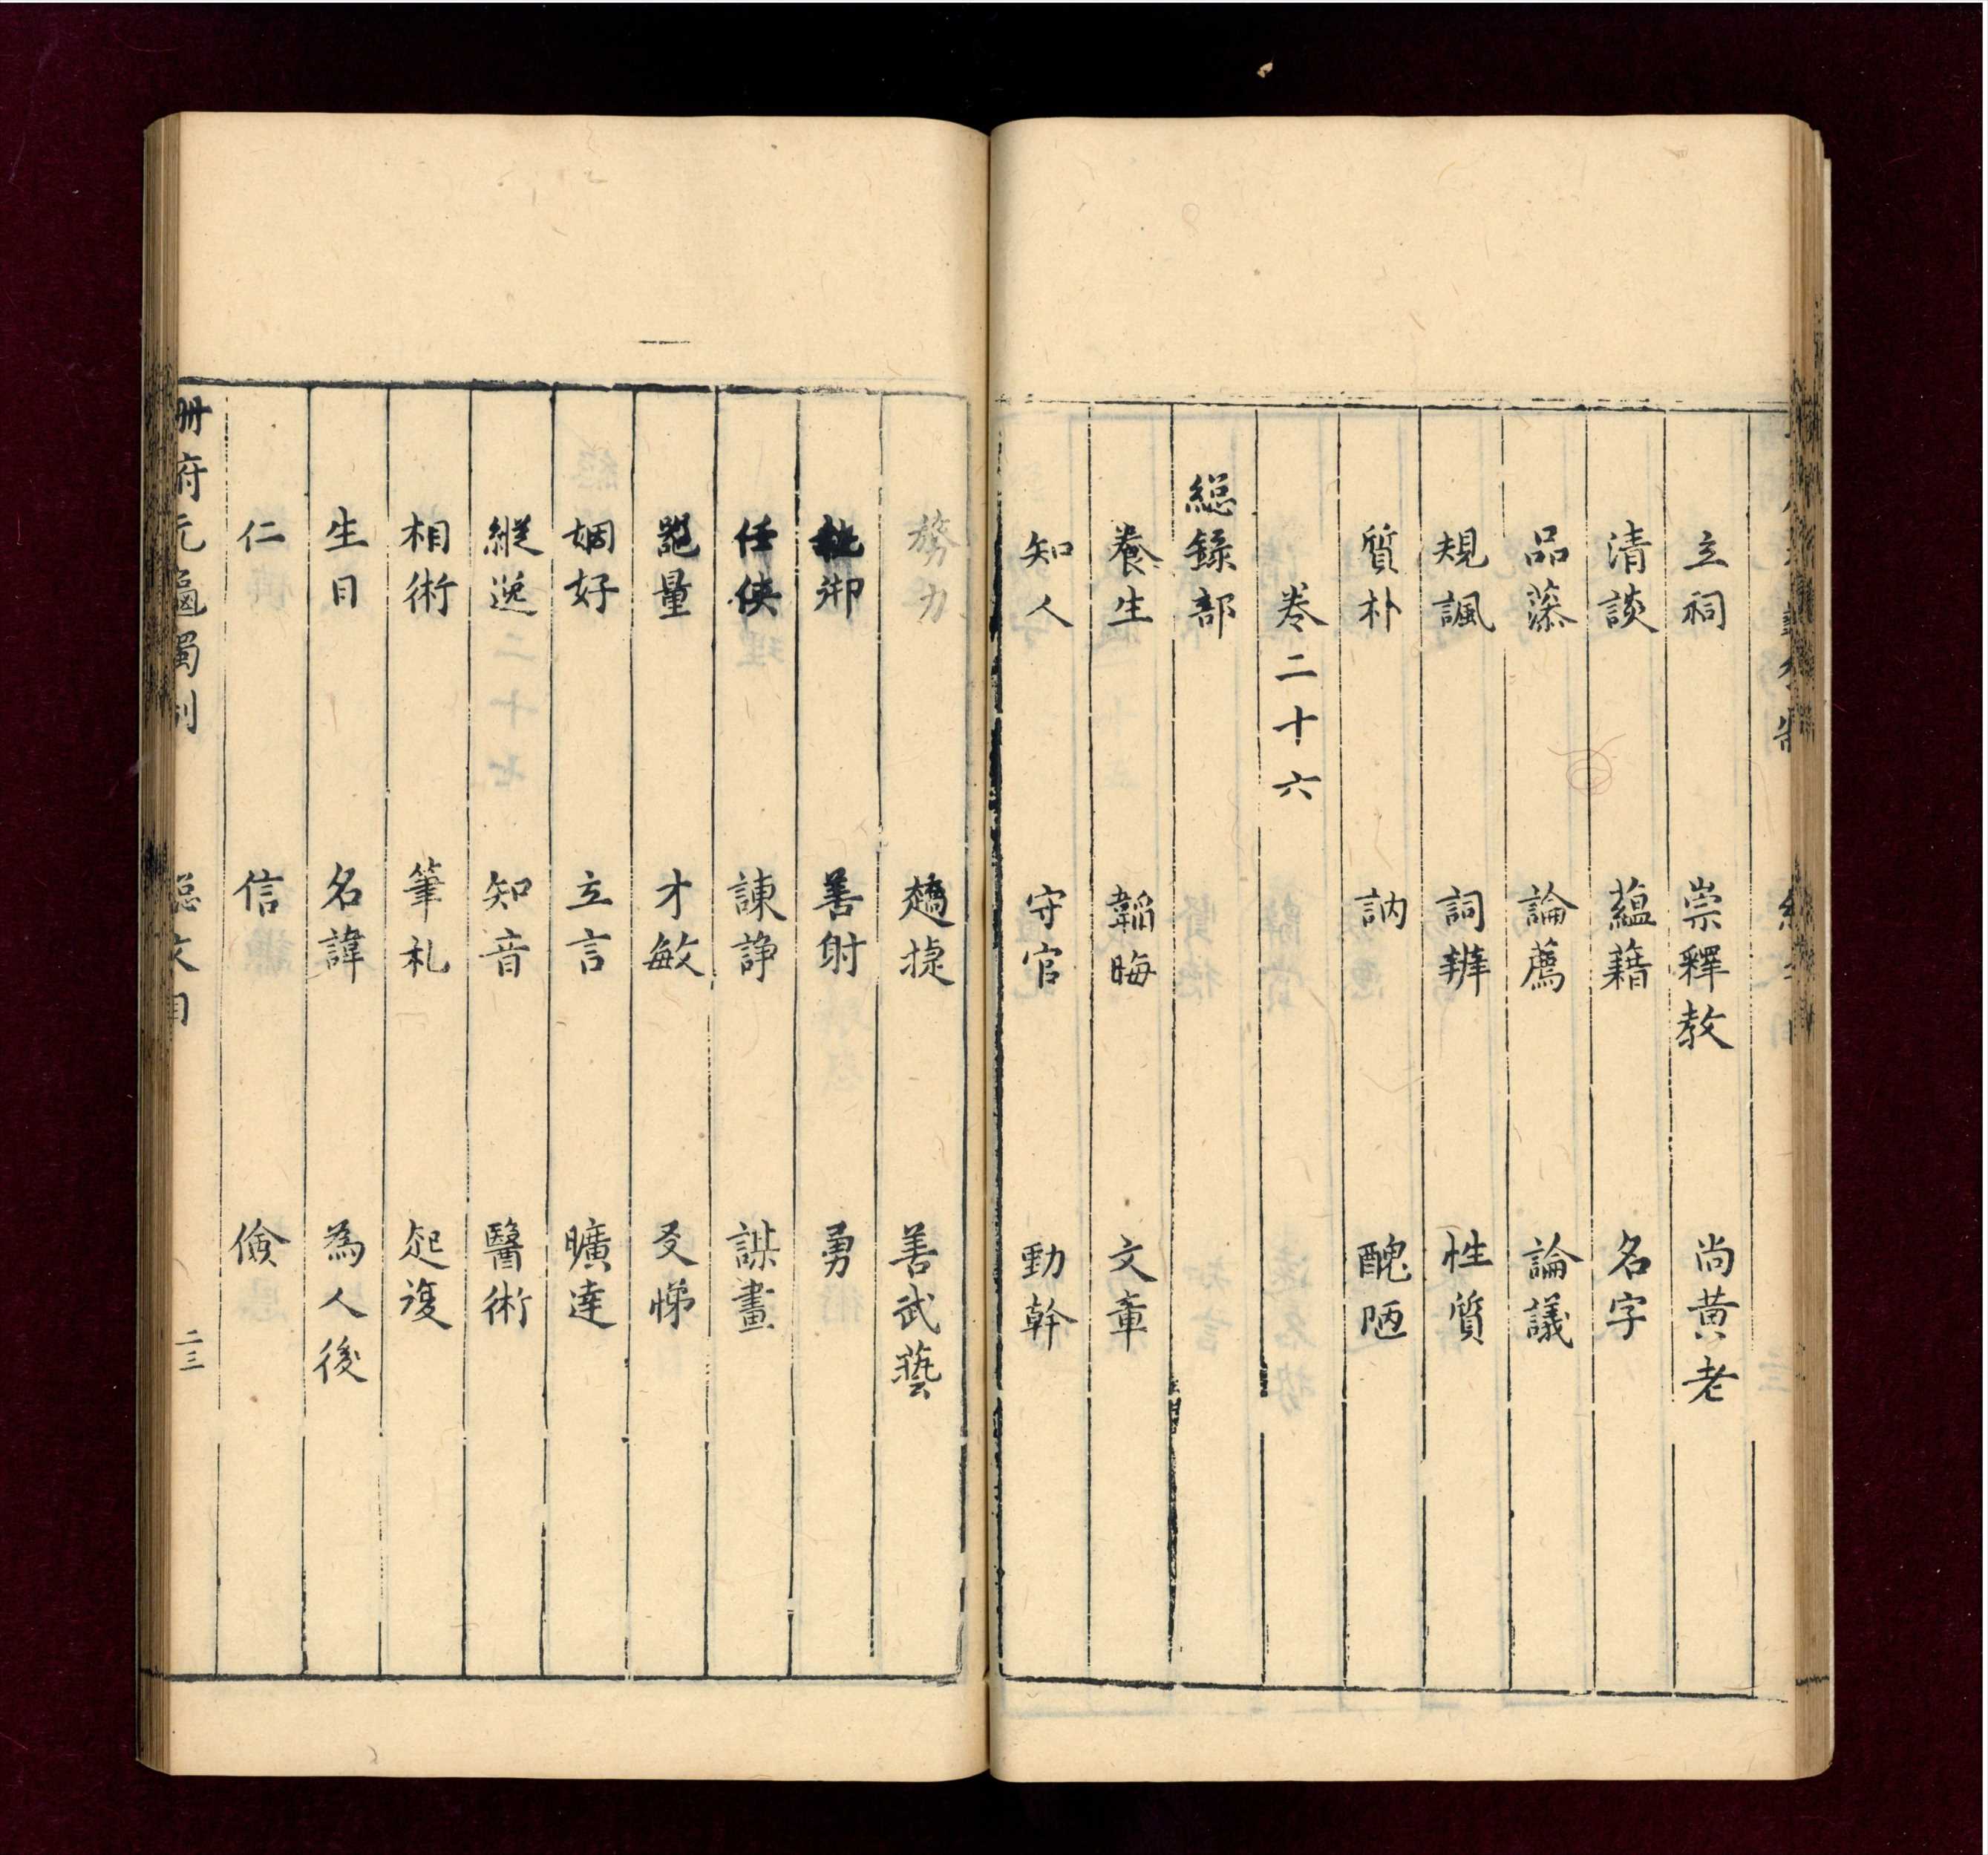 立祠 崇釋教 尚黃老
清談 蘊藉 名字
品藻 論薦 論議
規諷 詞辨 性質
質朴 訥 醜陋
卷二十六
総錄部
養生 韜晦 文章
知人 守官 勤幹
膂力 趫捷 善武藝
執御 善射 勇
任俠 諫諍 謀畫
器量 才敏 友悌
姻好 立言 曠達
縱逸 知音 醫術
相術 筆札 起復
生日 名諱 為人後
仁 信 儉
冊府元龜獨制 総文目 二三